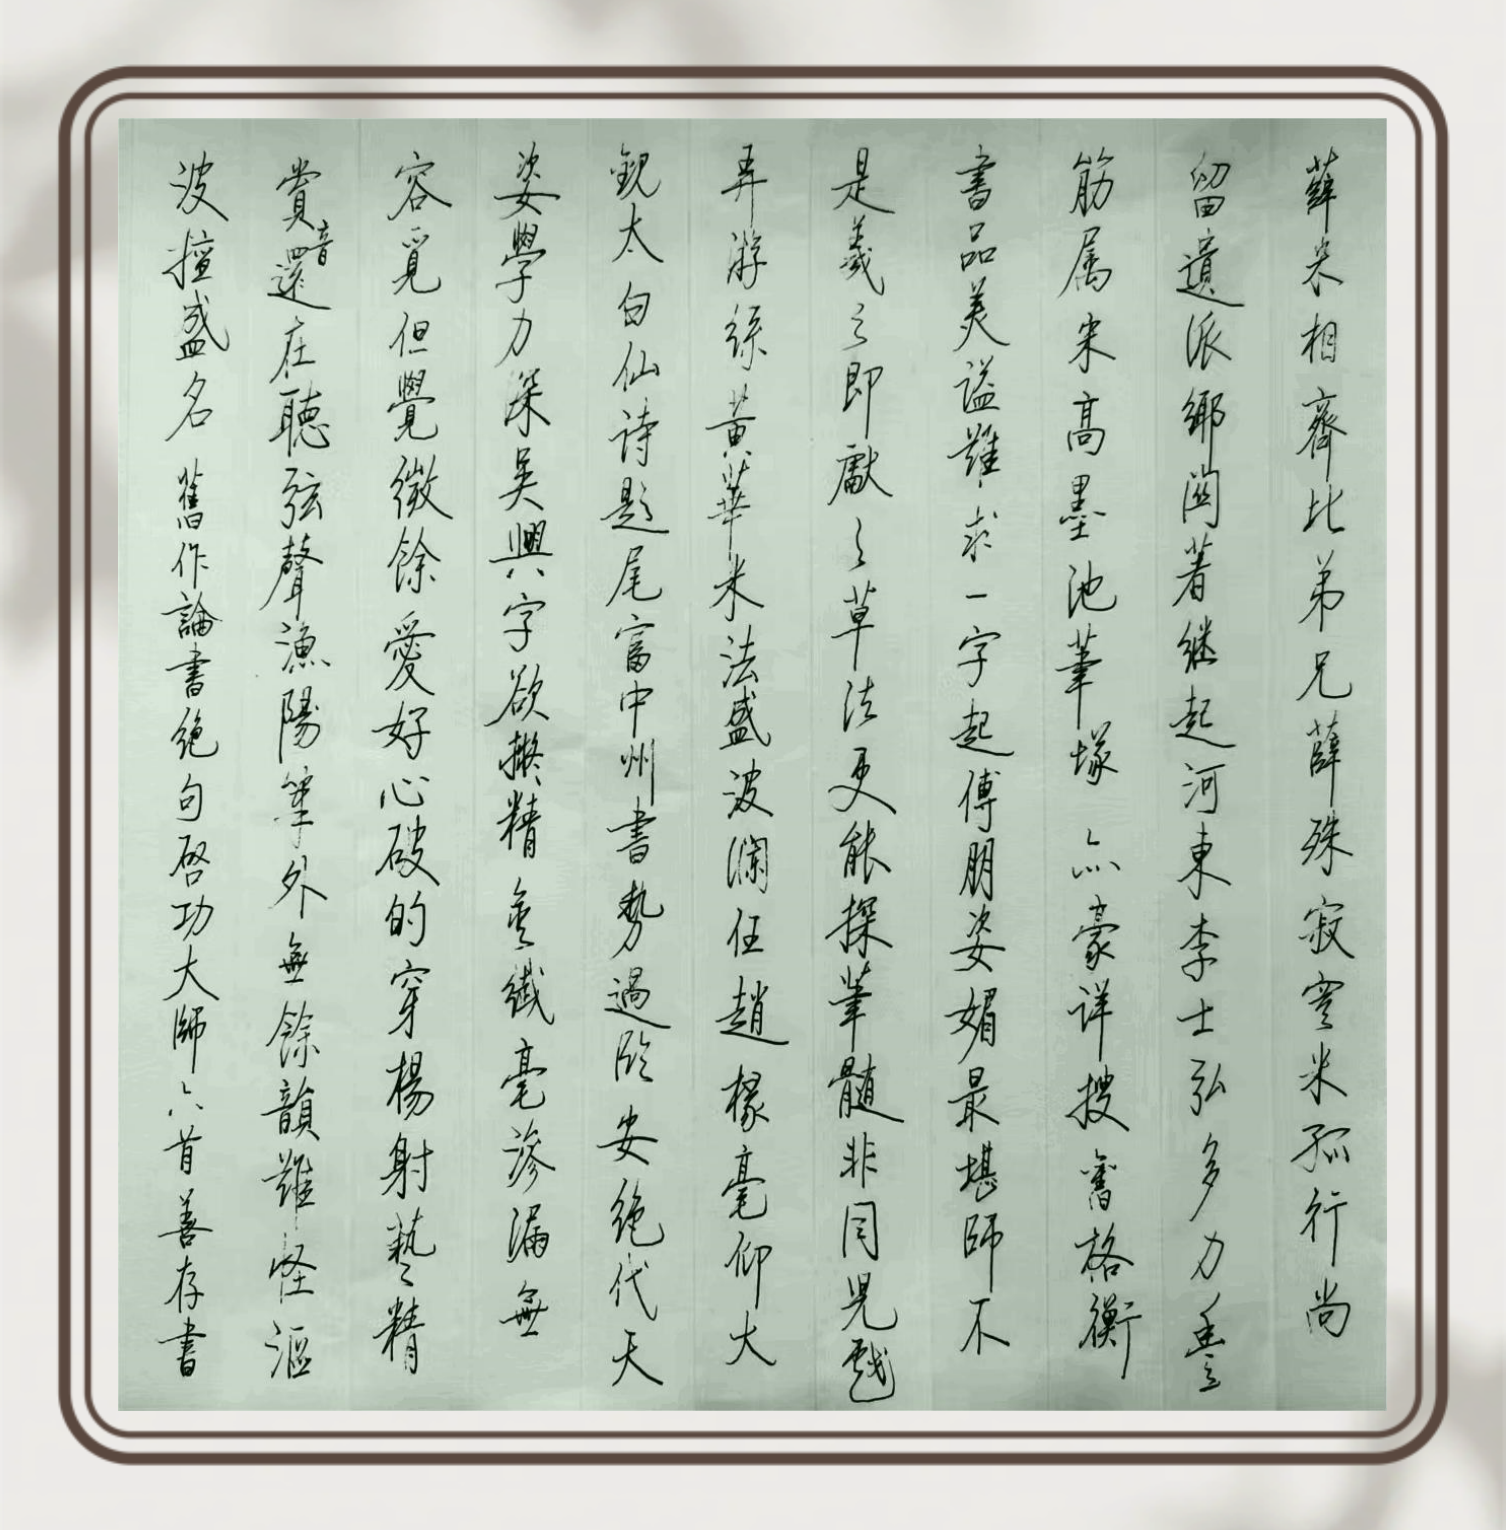 薛米相齊比弟兄薛殊寂寞米孤行尚
留遺派鄉閭著继起河東李士弘多力豐
筋属米高墨池筆塚亦豪详搜舊格衡
書品美谥難求一字起傅朋姿媚最堪師不
是羲之即獻之草法更能探筆髓非同児戲
弄游絲黄華米法盛波澜任趙椽毫仰大
觀太白仙诗題尾富中州書勢過临安绝代天
姿學力深吴興八字欲擬精無纖毫滲漏無
容覓但覺微餘愛好心破的穿楊射藝精
賞音還在聽弦聲漁陽筆外無餘韻難怪漚
波擅盛名 舊作論書绝句启功大師六首善存書